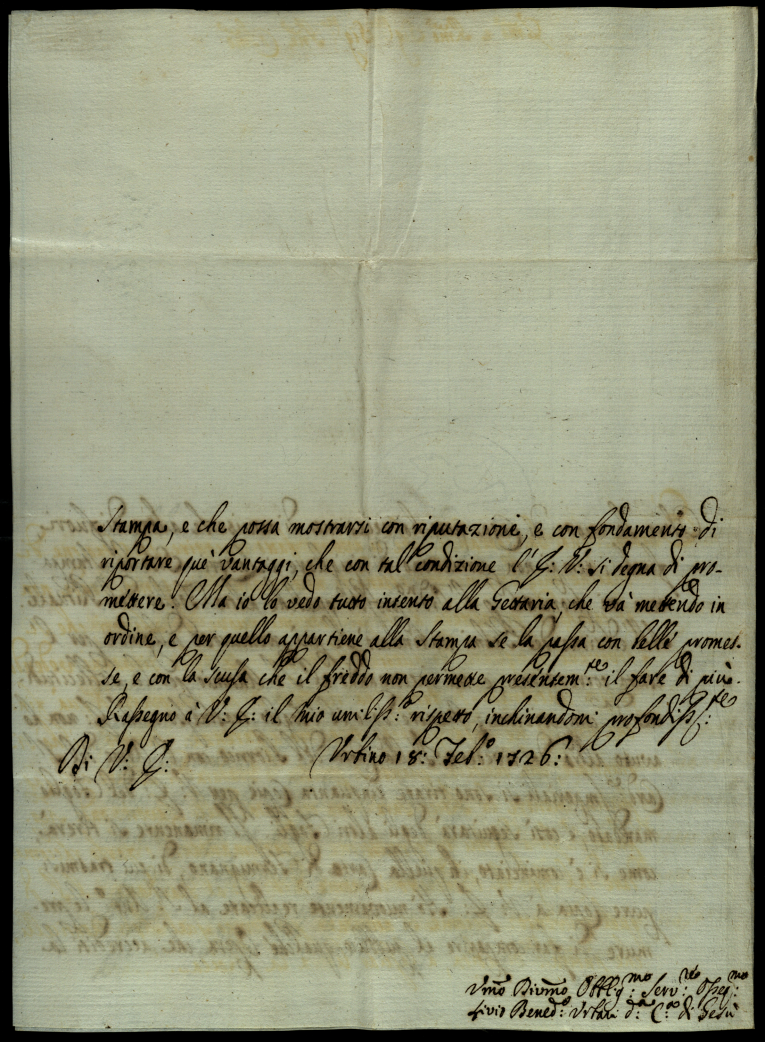 Stampa, e che possa mostrarsi con riputazione, e con fondamento di
riportare què vantaggi, che con tal condizione l' J: V: si degna di pro-
mettere. Ma io lo vedo tutto intento alla Gettaria, che và mettendo in
ordine, e per quello appartiene alla Stampa se la passa con belle promes-
se, e con la scusa che il freddo non permette presentem:te il fare di più.
Rassegno à V: J: il mio umiliss:o rispetto, inchinandomi profondiss:te
Di V: J: Urbino 18: Feb:o 1726:
Umo Divmo Obblig:mo Serv:re Osseq:mo
Livio Bened:o d:a C:a di Gesù